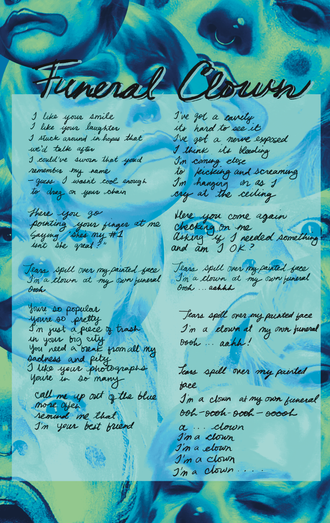 Funeral Clown
I like your smile
I like your laughter
I stuck around in hopes that
we'd talk after
I could've sworn that you'd
remember my name
guess I wasnt cool enough
to drag on your chain
There you go
pointing your finger at me
Saying "she's my #1
isnt she great?"
Tears spill over my painted face
I'm a clown at my own funeral
oooh
You're so popular
You're so pretty
I'm just a piece of trash
in your big city
You need a break from all my
sadness and pity
I like your photographs
You're in so many
call me up out of the blue
more often
remind me that
I'm your best friend
I've got a cavity
its hard to see it
I've got a nerve exposed
I think its bleeding
I'm coming close
to kicking and screaming
I'm hanging on as I
cry at the ceiling
Here you come again
checking on me
Asking if I needed something
and am I OK?
Tears spill over my painted face
I'm a clown at my own funeral
oooh ... aahhh
Tears spill over my painted face
I'm a clown at my own funeral
oooh ... aahh!
Tears spill over my painted
face
I'm a clown at my own funeral
ooh-oooh-oooh-ooooh
a .... clown
I'm a clown
I'm a clown
I'm a clown
I'm a clown ....